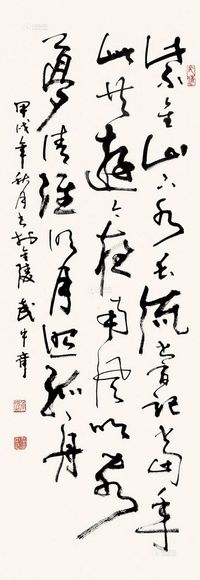 紫金山下水長流嘗記當年
此共遊今夜南風吹客
夢清淮明月照孤舟
甲戌年秋月書於金陵 武中奇